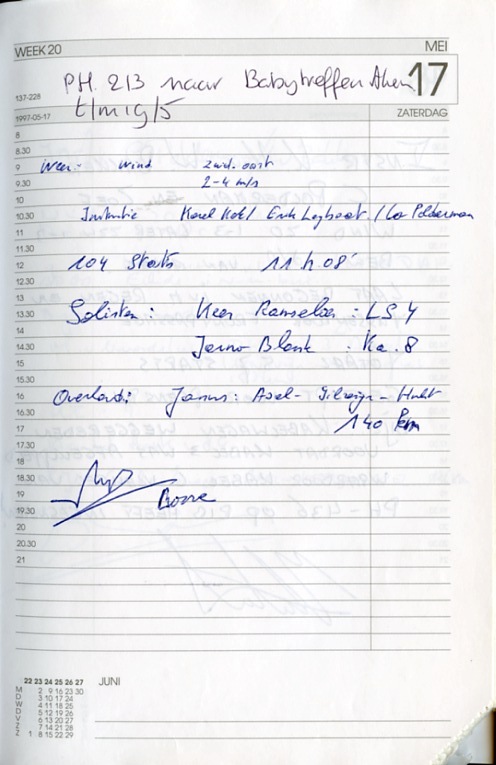 WEEK 20 MEI
17
PH. 213 naar Babytreffen
137-228
t/m 19/5
1997-05-17 ZATERDAG
8
8.30
9 Weer:- wind zwd. oost
9.30 2-4 m/s
10
10.30 Instructie Karel
11
11.30
12 104 Starts 11 h. 08'
12.30
13
13.30 Solisten: Kees : LS 4
14
14.30 Jarno Blonk : Ka. 8
15
15.30
16 Overland: Janus: Axel - - Hulst
16.30
17 140 km
17.30
18
18.30
19
19.30
20
20.30
21
JUNI
22 23 24 25 26 27
M 2 9 16 23 30
D 3 10 17 24
W 4 11 18 25
D 5 12 19 26
V 6 13 20 27
Z 7 14 21 28
Z 1 8 15 22 29